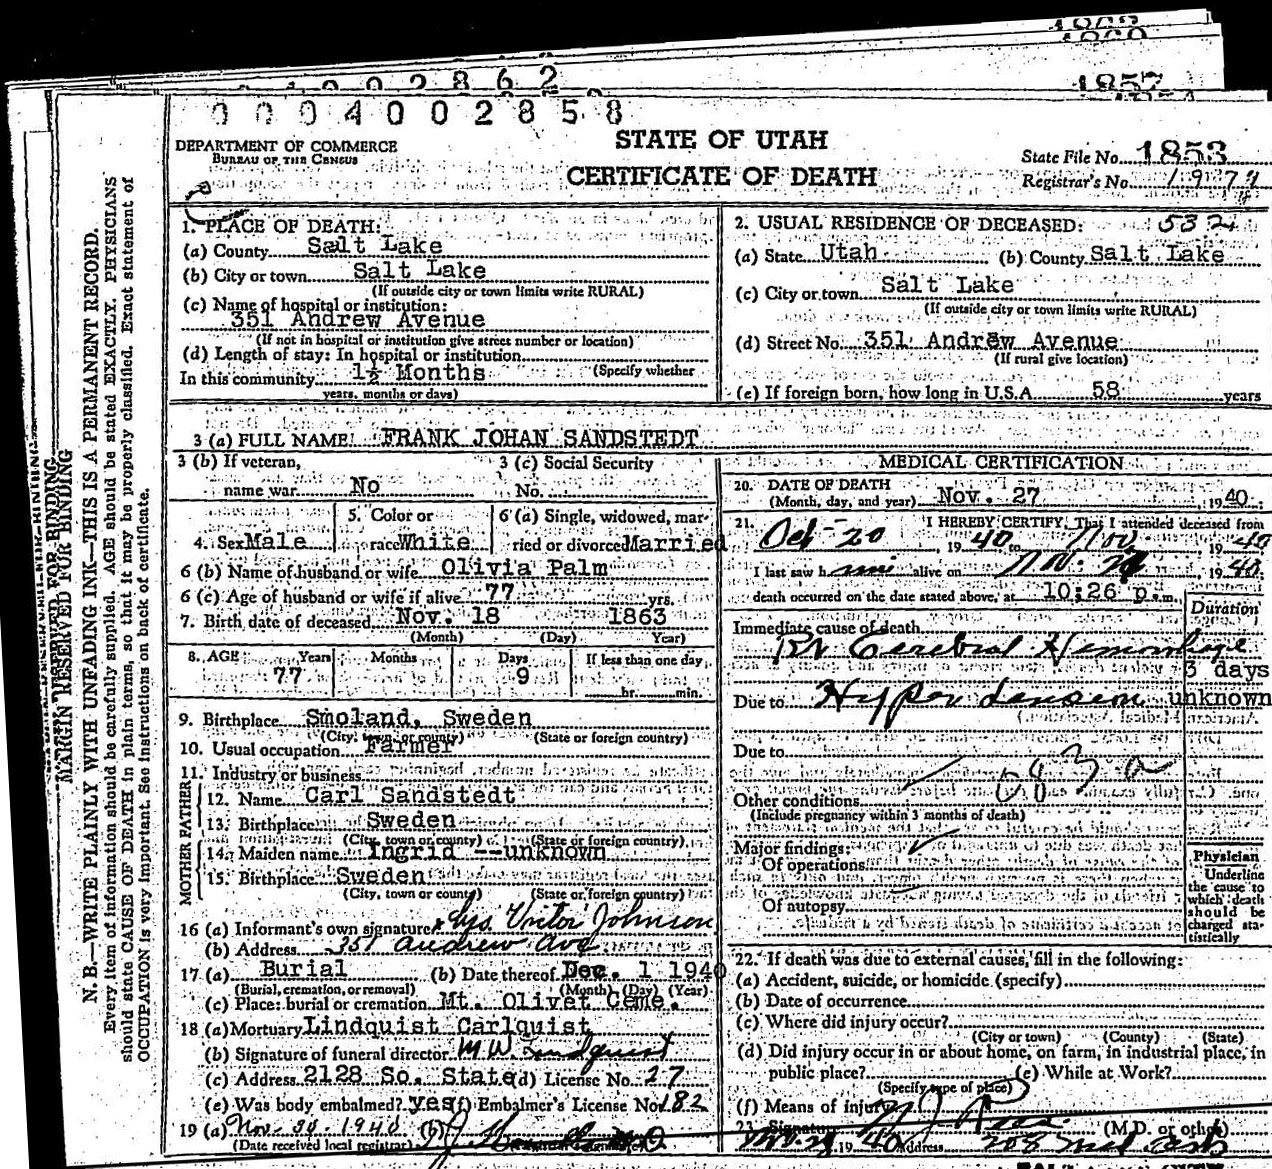 1862
1860
1857
0002862
0004002858
DEPARTMENT OF COMMERCE
BUREAU OF THE CENSUS
STATE OF UTAH
CERTIFICATE OF DEATH
State File No. 1853
Registrar's No. 1974
1. PLACE OF DEATH:
(a) County Salt Lake
(b) City or town Salt Lake
(If outside city or town limits write RURAL)
(c) Name of hospital or institution:
351 Andrew Avenue
(If not in hospital or institution give street number or location)
(d) Length of stay: In hospital or institution
(Specify whether
In this community 1½ Months
years, months or days)
2. USUAL RESIDENCE OF DECEASED: 532
(a) State Utah (b) County Salt Lake
(c) City or town Salt Lake
(If outside city or town limits write RURAL)
(d) Street No. 351 Andrew Avenue
(If rural give location)
(e) If foreign born, how long in U.S.A. 58 years
3 (a) FULL NAME FRANK JOHAN SANDSTEDT
3 (b) If veteran,
name war No
3 (c) Social Security
No.
4. Sex Male
5. Color or
race White
6 (a) Single, widowed, mar-
ried or divorced Married
6 (b) Name of husband or wife Olivia Palm
6 (c) Age of husband or wife if alive 77 yrs.
7. Birth date of deceased Nov. 18 1863
(Month) (Day) Year)
8. AGE Years Months Days If less than one day
77 9 hr. min.
9. Birthplace Smoland, Sweden
(City, town, or county) (State or foreign country)
10. Usual occupation Farmer
11. Industry or business
FATHER
12. Name Carl Sandstedt
13. Birthplace Sweden
(City, town or county) (State or foreign country)
MOTHER
14. Maiden name Ingrid --unknown
15. Birthplace Sweden
(City, town or county) (State or foreign country)
16 (a) Informant's own signature Victor Johnson
(b) Address 351 Andrew Ave
17 (a) Burial (b) Date thereof Dec. 1 1940
(Burial, cremation, or removal) (Month) (Day) (Year)
(c) Place: burial or cremation Mt. Olivet Ceme.
18 (a) Mortuary Lindquist Carlquist
(b) Signature of funeral director M W. Lindquist
(c) Address 2128 So. State (d) License No. 27
(e) Was body embalmed? yes (f) Embalmer's License No. 182
19 (a) Nov-30-1940 (b)
(Date received local registrar)
MEDICAL CERTIFICATION
20. DATE OF DEATH
(Month, day, and year) Nov. 27 1940
21. I HEREBY CERTIFY, That I attended deceased from
Oct-20 1940 to Nov. 1940
I last saw him alive on Nov. 1940
death occurred on the date stated above, at 10:26 p.m.
Duration
Immediate cause of death
Rt Cerebral Hemorrhage
3 days
Due to Hypertension unknown
Due to
083a
Other conditions
(Include pregnancy within 3 months of death)
Major findings:
Of operations
Of autopsy
Physician
Underline
the cause to
which death
should be
charged sta-
tistically
22. If death was due to external causes, fill in the following:
(a) Accident, suicide, or homicide (specify)
(b) Date of occurrence
(c) Where did injury occur?
(City or town) (County) (State)
(d) Did injury occur in or about home, on farm, in industrial place, in
public place? (e) While at Work?
(Specify type of place)
(f) Means of injury
23. Signature (M.D. or other)
1940 Address 208
MARGIN RESERVED FOR BINDING
N. B.—WRITE PLAINLY WITH UNFADING INK—THIS IS A PERMANENT RECORD.
Every item of information should be carefully supplied. AGE should be stated EXACTLY. PHYSICIANS
should state CAUSE OF DEATH in plain terms, so that it may be properly classified. Exact statement of
OCCUPATION is very important. See instructions on back of certificate.